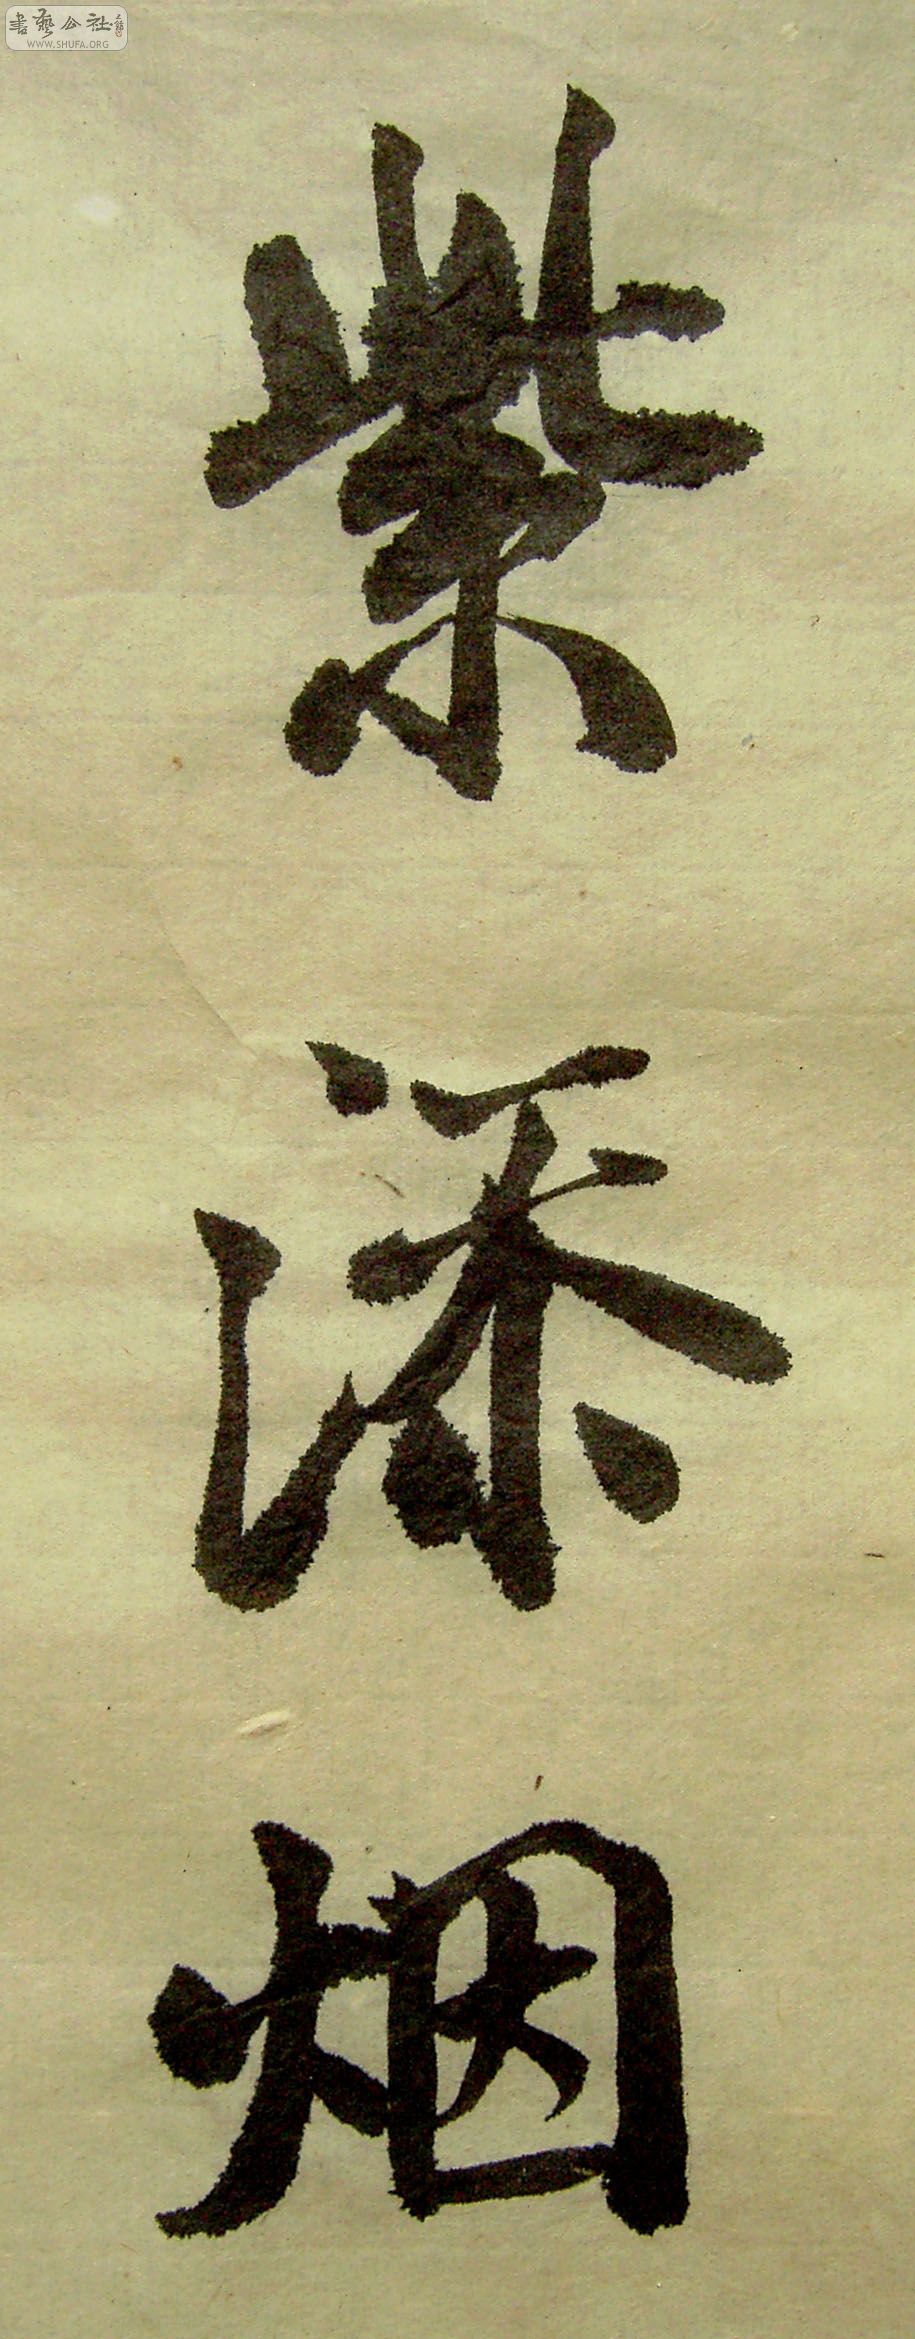 書藝公社
WWW.SHUFA.ORG
紫添烟